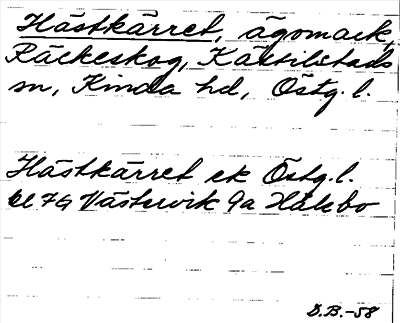 Hästkärret, ägomark,
Räckeskog, Kättilstads
sn, Kinda hd, Östg. l.
Hästkärret ek Östg. l.
bl 79 Västervik 9a
D.B.-58